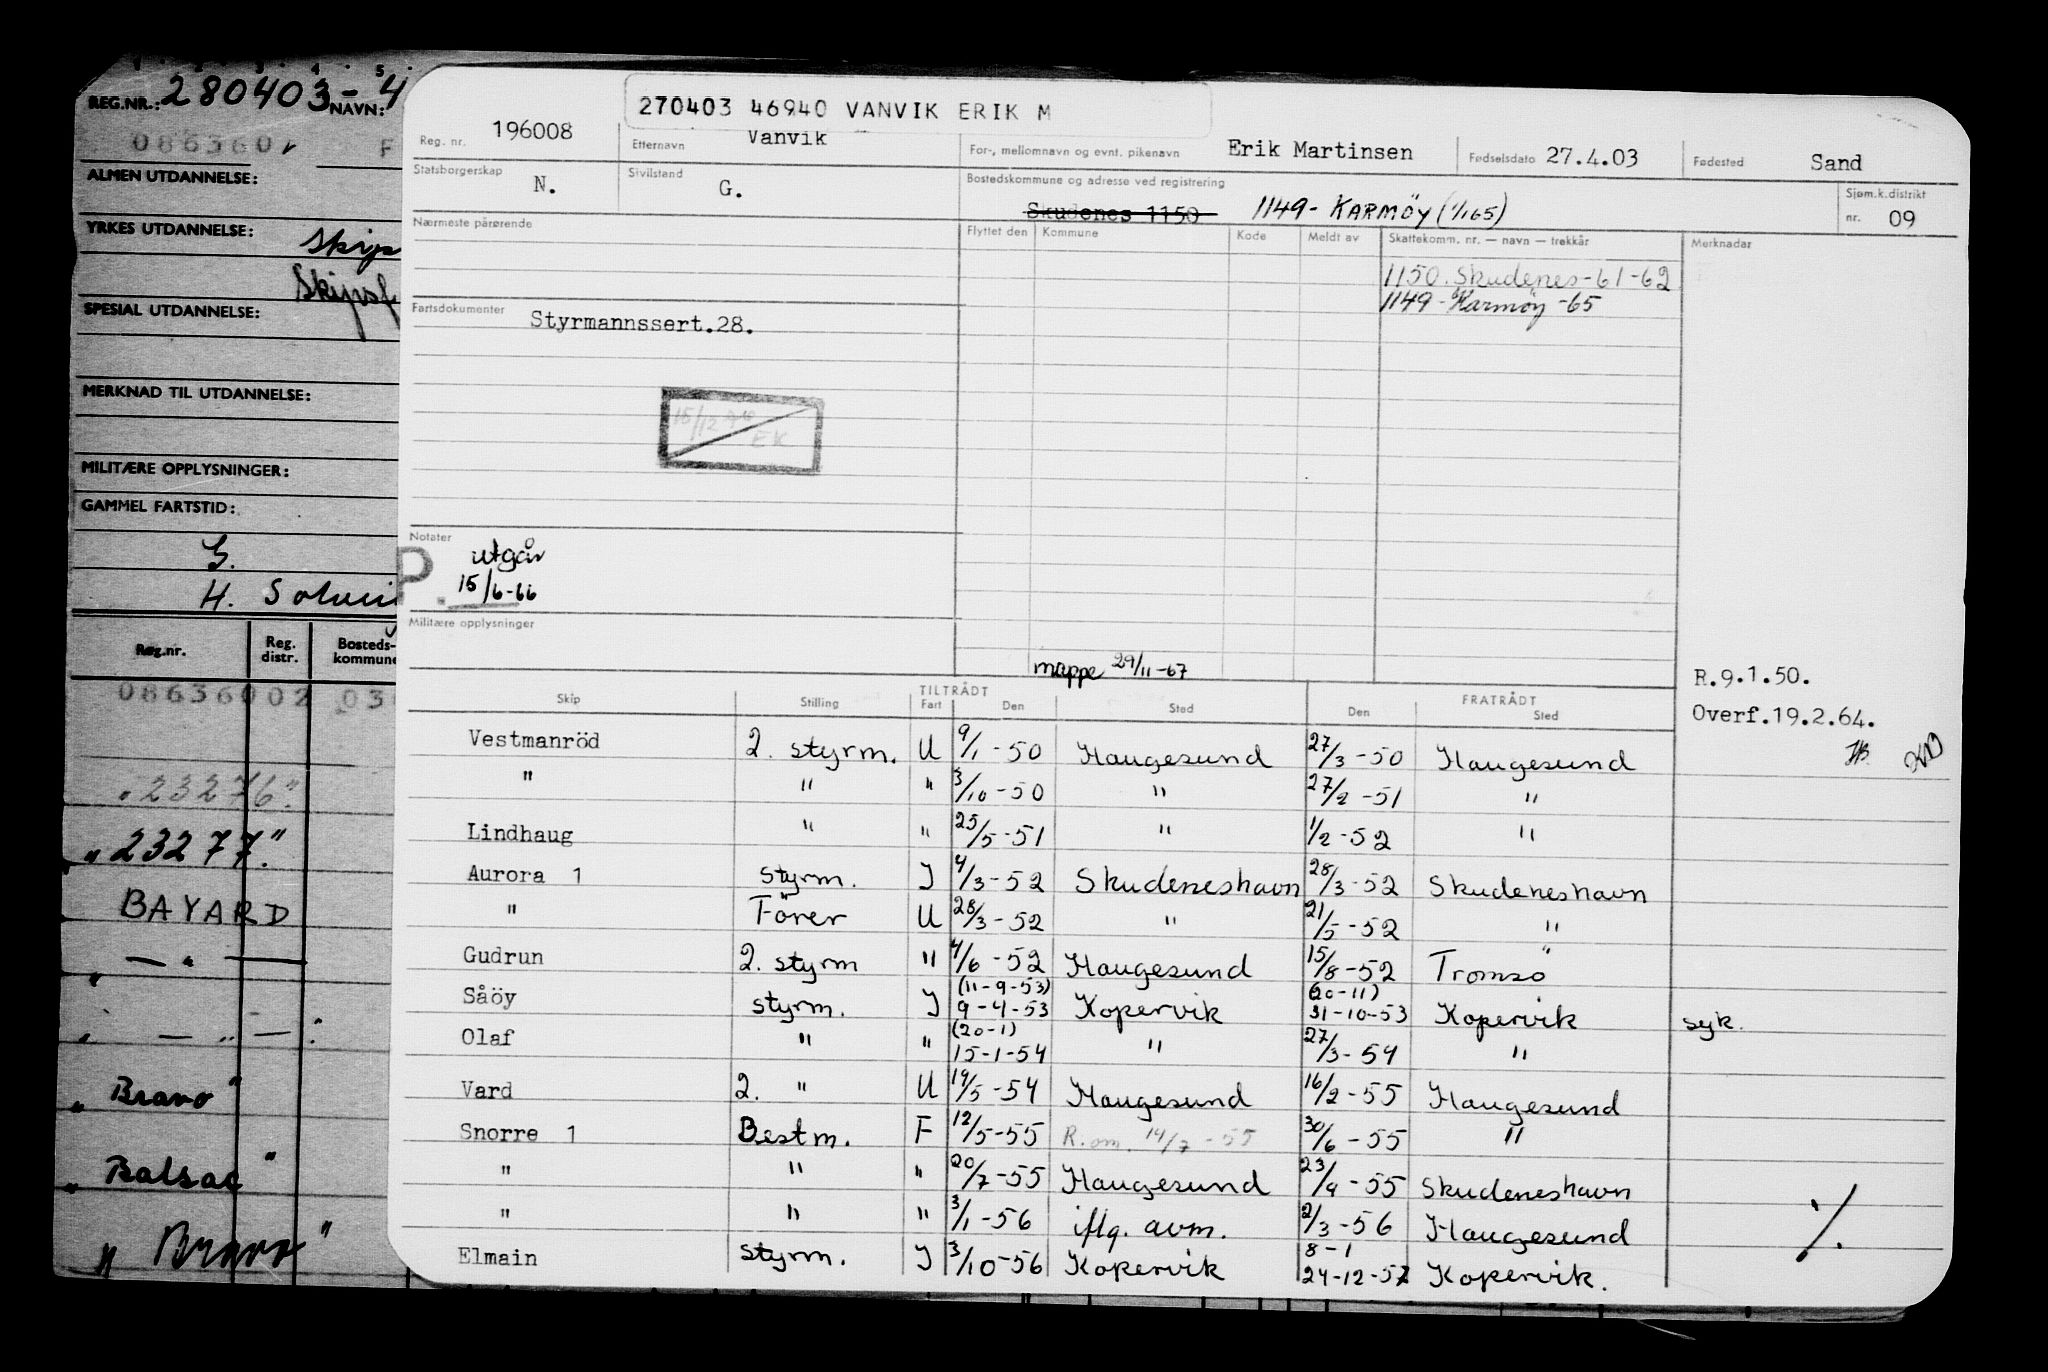 REG.NR.: 280403-4 NAVN:
0863602 F
ALMEN UTDANNELSE:
YRKES UTDANNELSE: Skips
SPESIAL UTDANNELSE:
MERKNAD TIL UTDANNELSE:
MILITÆRE OPPLYSNINGER:
GAMMEL FARTSTID:
G.
H.
Reg.nr. Reg. distr. Bosteds- kommune
08636002 03
" 23276."
" 23277."
BAYARD
" — " —
" — " — :
" Bravo "
" Balsac "
" Bravo "
270403 46940 VANVIK ERIK M
Reg. nr. 196008 Etternavn Vanvik For-, mellomnavn og evnt. pikenavn Erik Martinsen Fødselsdato 27.4.03 Fødested Sand
Statsborgerskap N. Sivilstand G. Bostedskommune og adresse ved registrering Skudenes 1150 1149 - KARMÖY (1/1 65) Sjøm.k.distrikt nr. 09
Nærmeste pårørende Flyttet den Kommune Kode Meldt av Skattekomm. nr. — navn — trekkår Merknadar
1150. Skudenes-61-62
1149 - Karmöy -65
Fartsdokumenter Styrmannssert.28.
15/12 76
EK
Notater utgår
P. 15/6-66
Militære opplysninger
mappe 29/11-67
R.9.1.50.
Overf.19.2.64.
Skip Stilling TILTRÅDT Fart Den Sted FRATRÅDT Den Sted
Vestmanröd 2. styrm. U 9/1-50 Haugesund 27/3-50 Haugesund
" " " 3/10-50 " 27/2-51 "
Lindhaug " " 25/5-51 " 1/2-52 "
Aurora 1 styrm. I 4/3-52 Skudeneshavn 28/3-52 Skudeneshavn
" Förer U 28/3-52 " 21/5-52 "
Gudrun 2. styrm " 4/6-52 Haugesund 15/8-52 Tromsö
(11-9-53) (20-11)
Såöy styrm. I 9-4-53 Kopervik 31-10-53 Kopervik syk.
(20-1)
Olaf " " 15-1-54 " 27/3-54 "
Vard 2. " U 19/5-54 Haugesund 16/2-55 Haugesund
Snorre 1 Bestm. F 12/5-55 R.om. 14/7-55 30/6-55 "
" " " 20/7-55 Haugesund 23/9-55 Skudeneshavn
" " " 3/1-56 iflg. avm. 2/3-56 Haugesund
8-1
Elmain styrm. I 3/10-56 Kopervik 24-12-57 Kopervik.